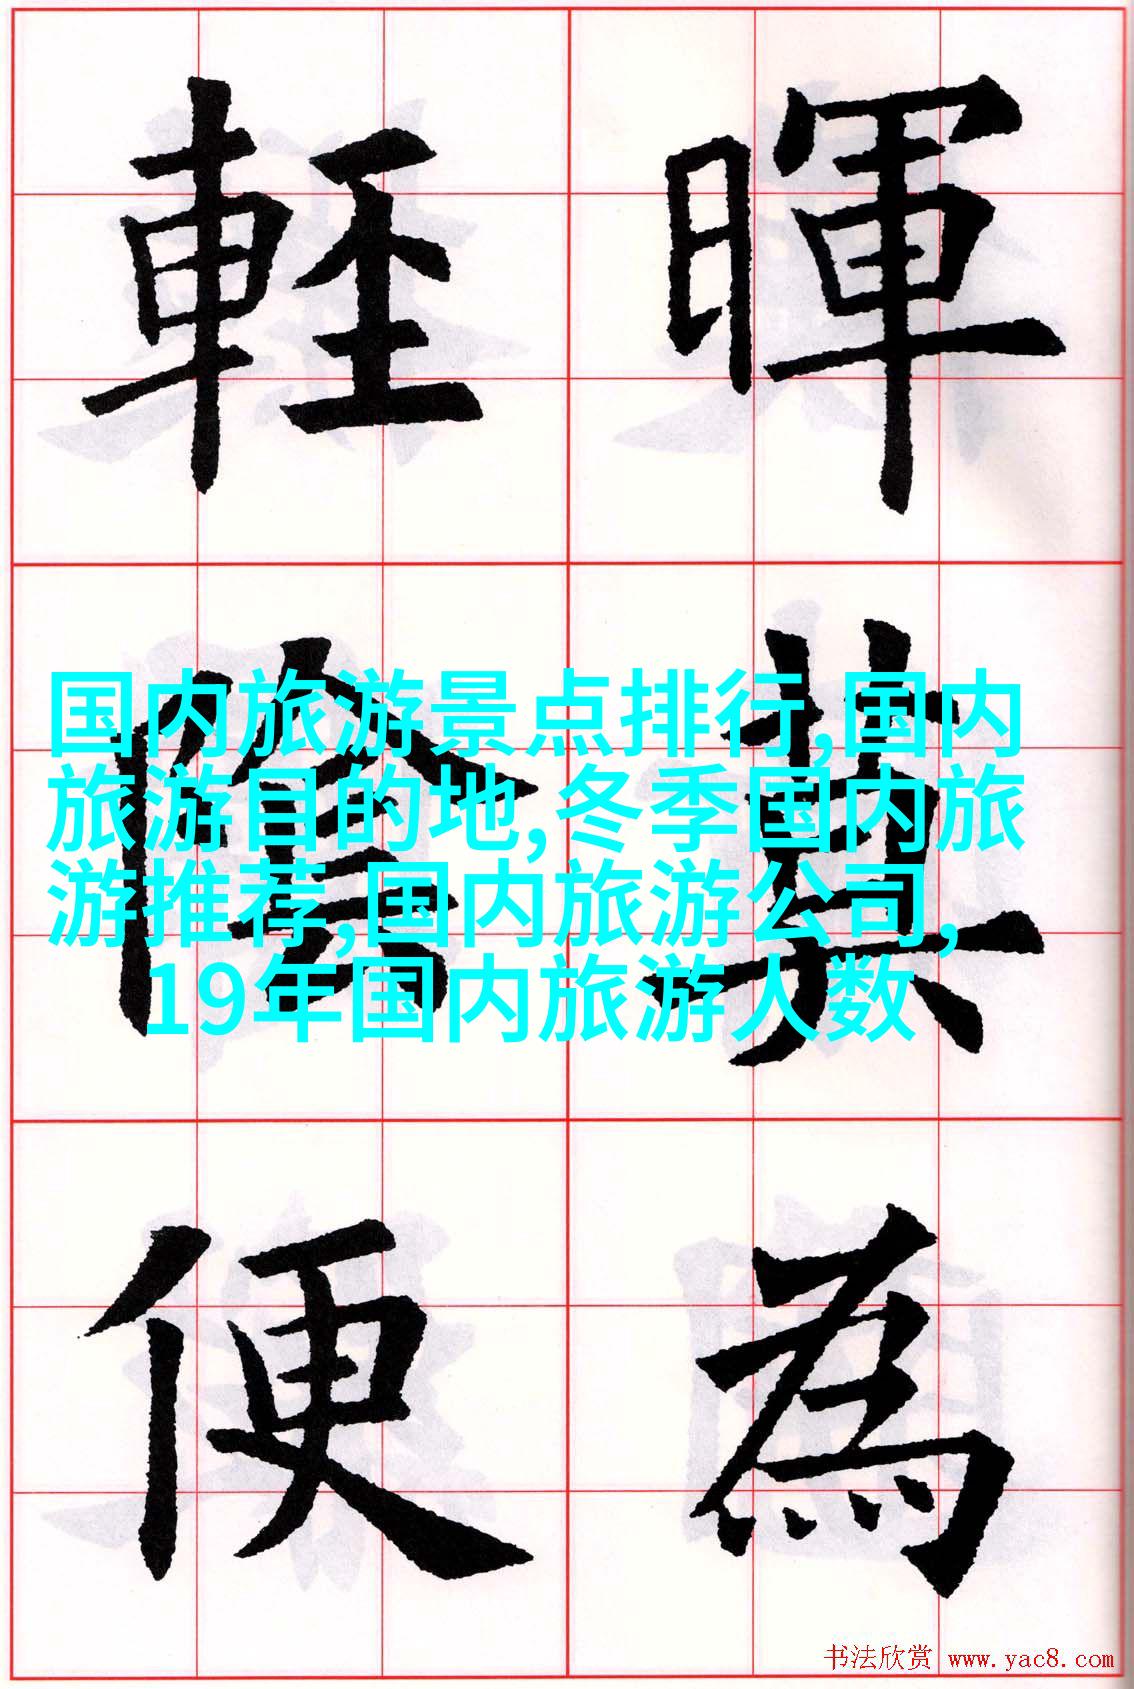 暉莫為
輕陰便
国内旅游景点排行,国内
旅游目的地,冬季国内旅
游推荐,国内旅游公司,
19年国内旅游人数
书法欣赏 www.yac8.com